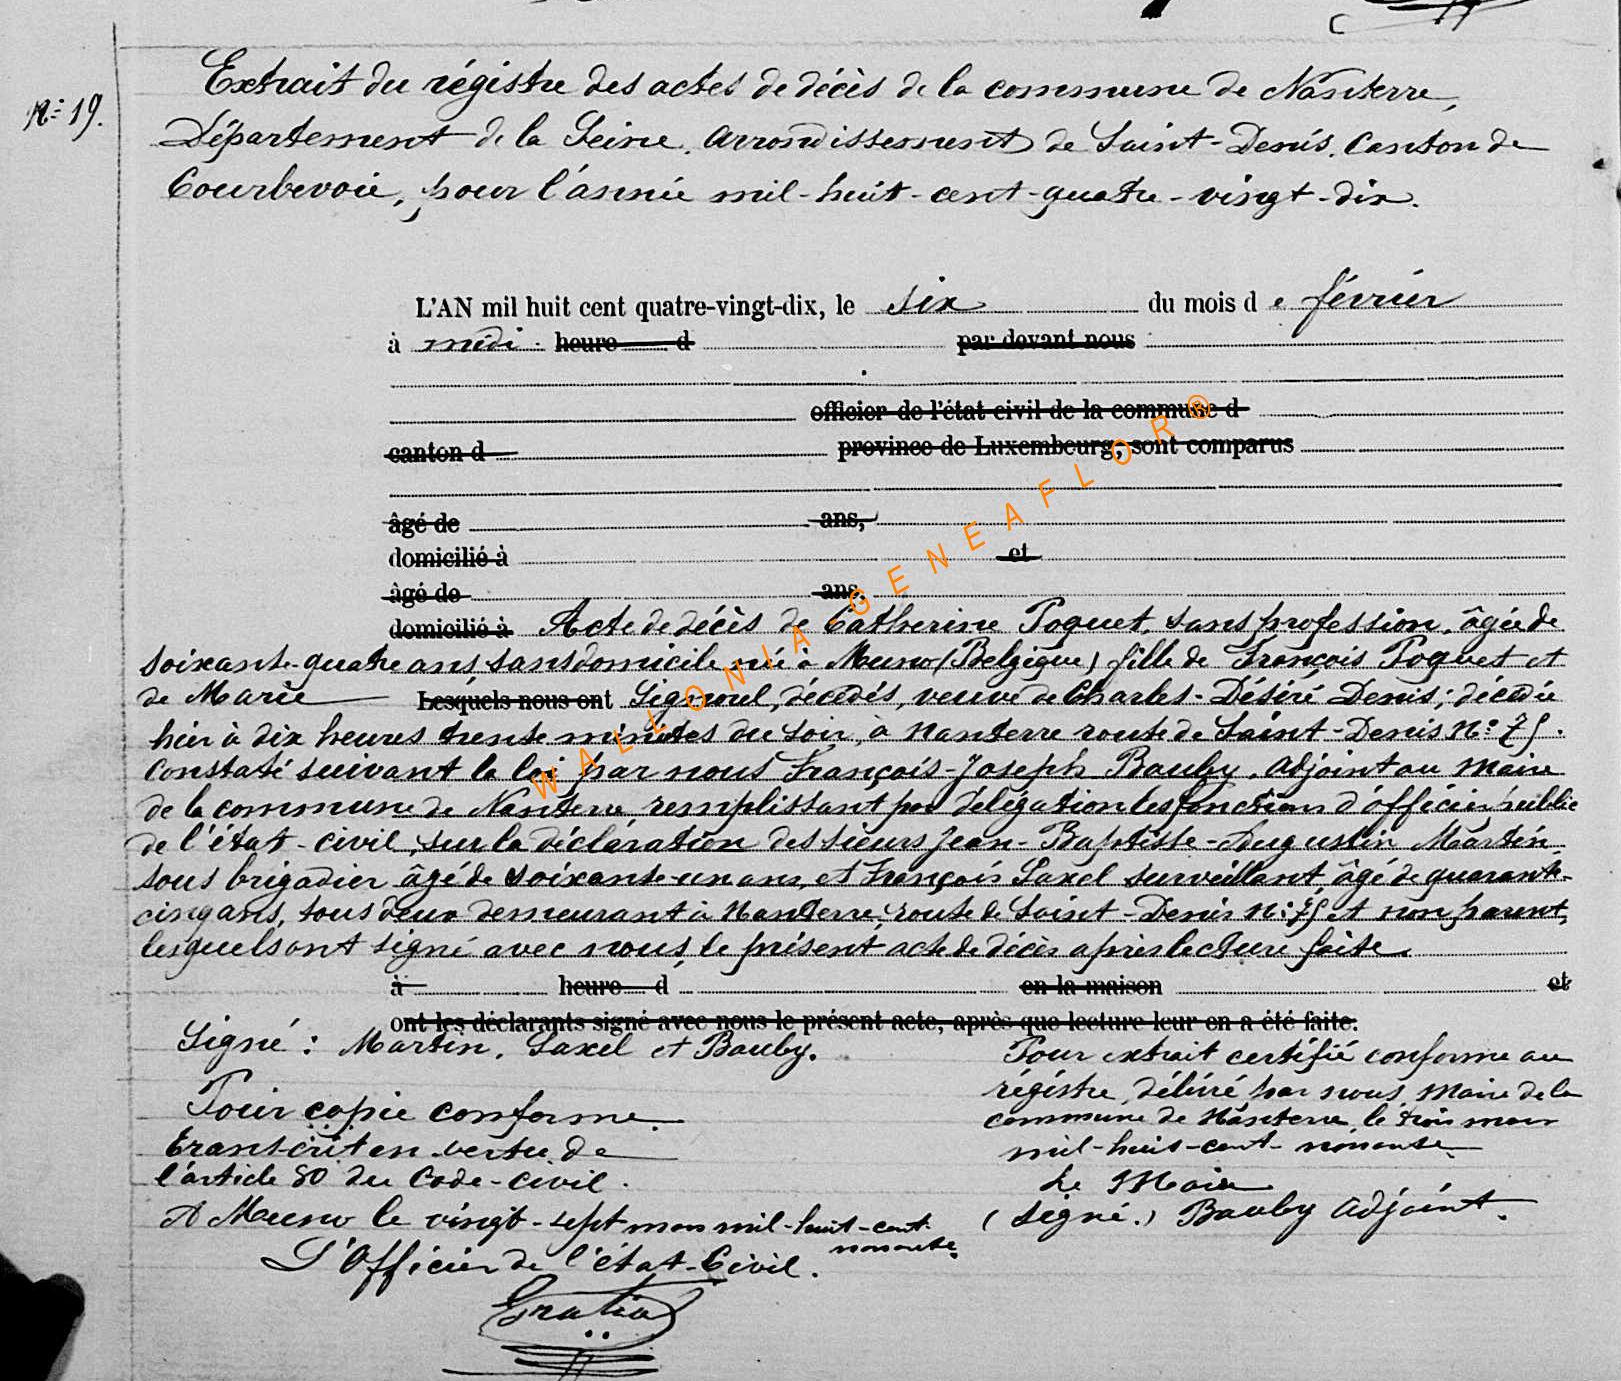 N° 19.
Extrait du régistre des actes de décès de la commune de Nanterre,
Département de la Seine, arrondissement de Saint-Denis, Canton de
Courbevoie, pour l'année mil-huit-cent-quatre-vingt-dix.
L'AN mil huit cent quatre-vingt-dix, le six du mois d e février
à midi heure d par devant nous
officier de l'état civil de la commune d
canton d province de Luxembourg, sont comparus
âgé de ans,
domicilié à et
âgé de ans,
domicilié à Acte de décès de Catherine Poquet, sans profession, âgée de
soixante-quatre ans, sans domicile, née à Muno (Belgique) fille de François Poquet et
de Marie Lesquels nous ont Signoul, décédés, veuve de Charles-Désiré Denis; décédée
hier à dix heures trente minutes du soir, à Nanterre route de Saint-Denis N° 75.
Constaté suivant la loi par nous François-Joseph Bauby, adjoint au Maire
de la commune de Nanterre, remplissant par délégation les fonctions d'officier public
de l'état-civil, sur la déclaration des sieurs Jean-Baptiste-Augustin Martin,
sous brigadier âgé de soixante-un ans, et François Saxel surveillant, âgé de quarante-
cinq ans, tous deux demeurant à Nanterre, route de Saint-Denis N° 75 et non parent,
lesquels ont signé avec nous, le présent acte de décès après lecture faite.
à heure d en la maison et
ont les déclarants signé avec nous le présent acte, après que lecture leur en a été faite.
Signé: Martin, Saxel et Bauby.
Pour copie conforme.
Transcrit en vertu de
l'article 80 du Code-Civil.
A Muno le vingt-sept mars mil-huit-cent
nonante.
L'Officier de l'état-Civil.
Pour extrait certifié conforme au
régistre, délivré par nous, Maire de la
commune de Nanterre, le trois mars
mil-huit-cent-nonante.
Le Maire
(signé.) Bauby adjoint.
WALLONIA GENEAFLOR®